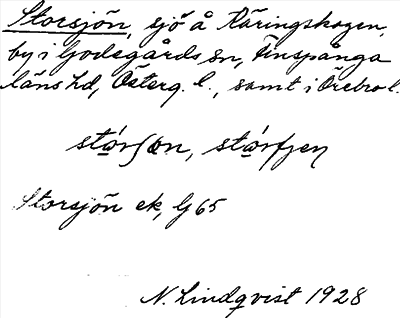 Storsjön, sjö å Käringskogen,
by i Godegårds sn, Finspånga
läns hd, Österg. l., samt i Örebro l.
Storsjön ek, G 65
N. Lindqvist 1928